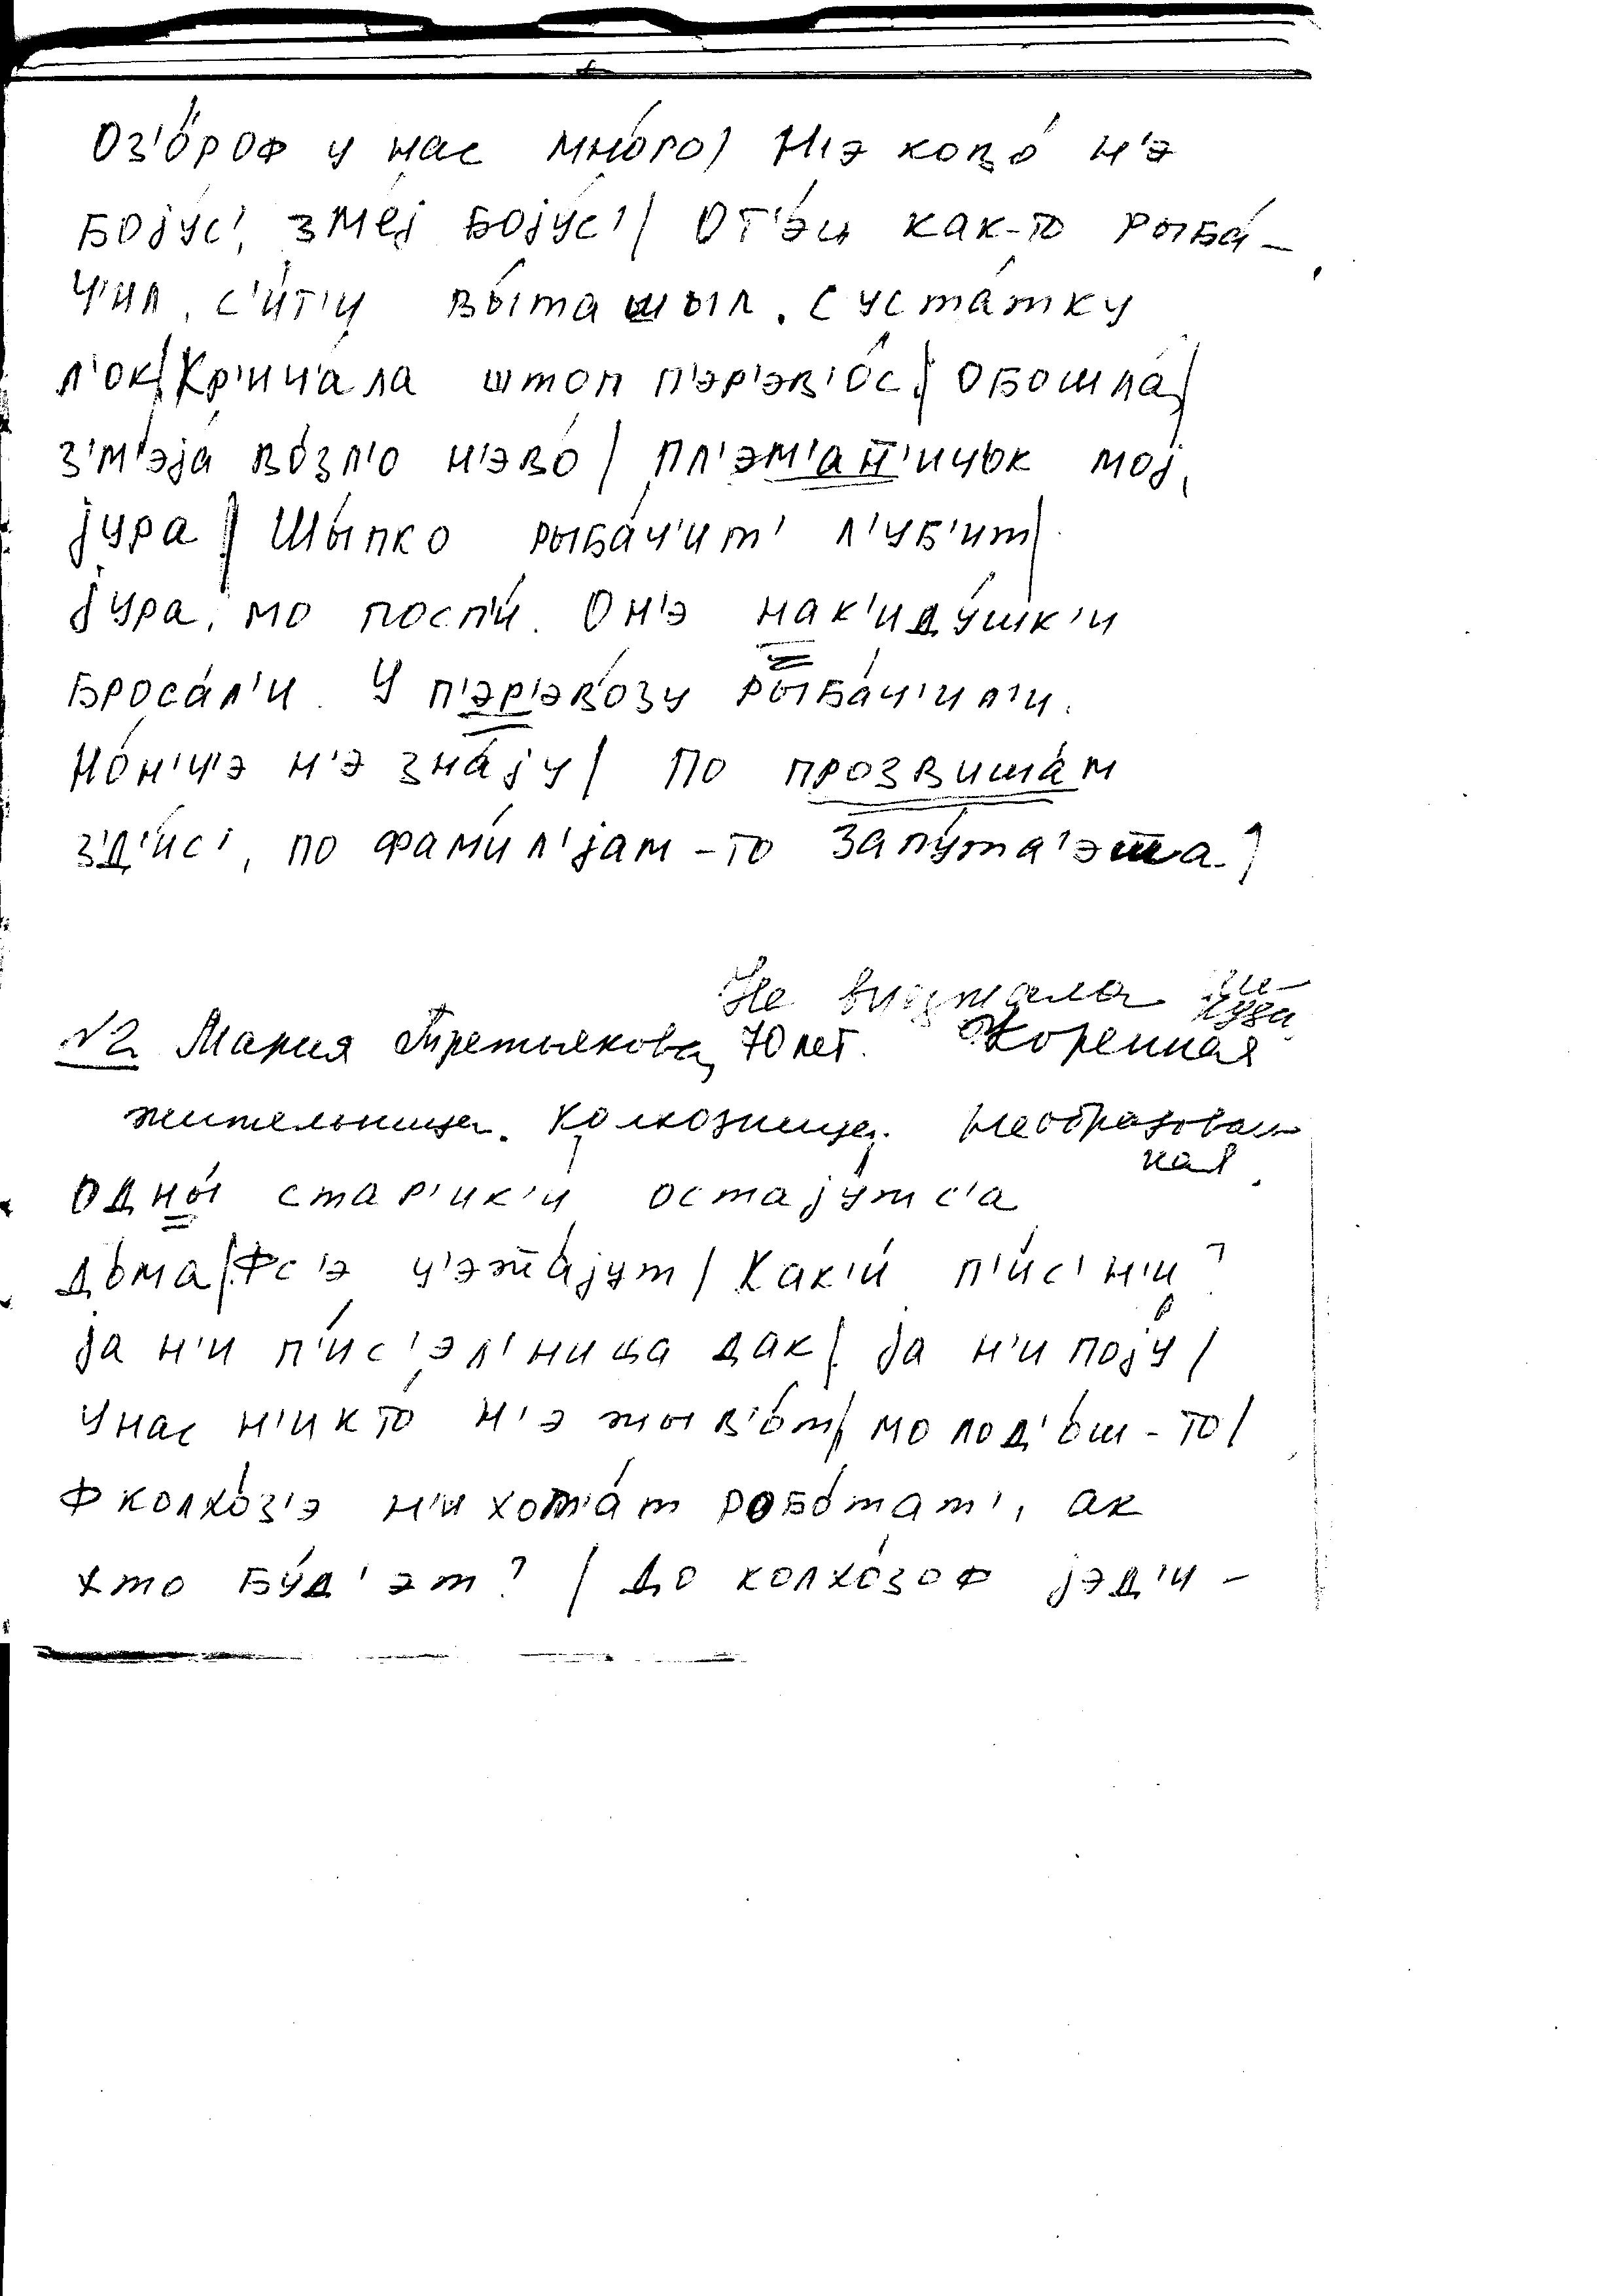 Оз'о́роф у нас мно́го/ Н'э ково́ н'э
боjу́с', змеj боjу́с'/ От'э́ц как-то рыба́-
ч'ил, с'и́т'и вы́ташыл. С уста́тку
л'ок/ Кр'ич'а́ла штоп п'эр'эв'о́с/ обошла́/
з'м'эjа́ во́зл'о н'эво́/ пл'эм'а́н'ичок моj,
jу́ра/ Шы́пко рыба́ч'ит' л'у́б'ит/
jу́ра, мо посп'и́. Он'э нак'иду́шк'и
броса́л'и. У п'эр'эво́зу рыба́ч'ил'и.
Но́н'ч'э н'э зна́jу/ По прозвиша́м
з'д'ис', по фами́л'jам-то запу́та'эшa/
Не выезжала ни-
куда
№2 Мария Третьякова, 70 лет. Коренная
жительница. Колхозница. Необразован-
ная.
одны́ стар'ик'и́ остаjу́тс'а
до́ма/ Фс'э у'эжа́jут/ Как'и́ п'и́с'н'и?
jа н'и п'и́с'эл'ница дак/ jа н'и поjу́/
У нас н'икто́ н'э жыв'о́т/ молод'о́ш-то/
Ф колхо́з'э н'и хот'а́т робо́тат', ак
хто бу́д'эт? / До колхо́зоф jэд'и-